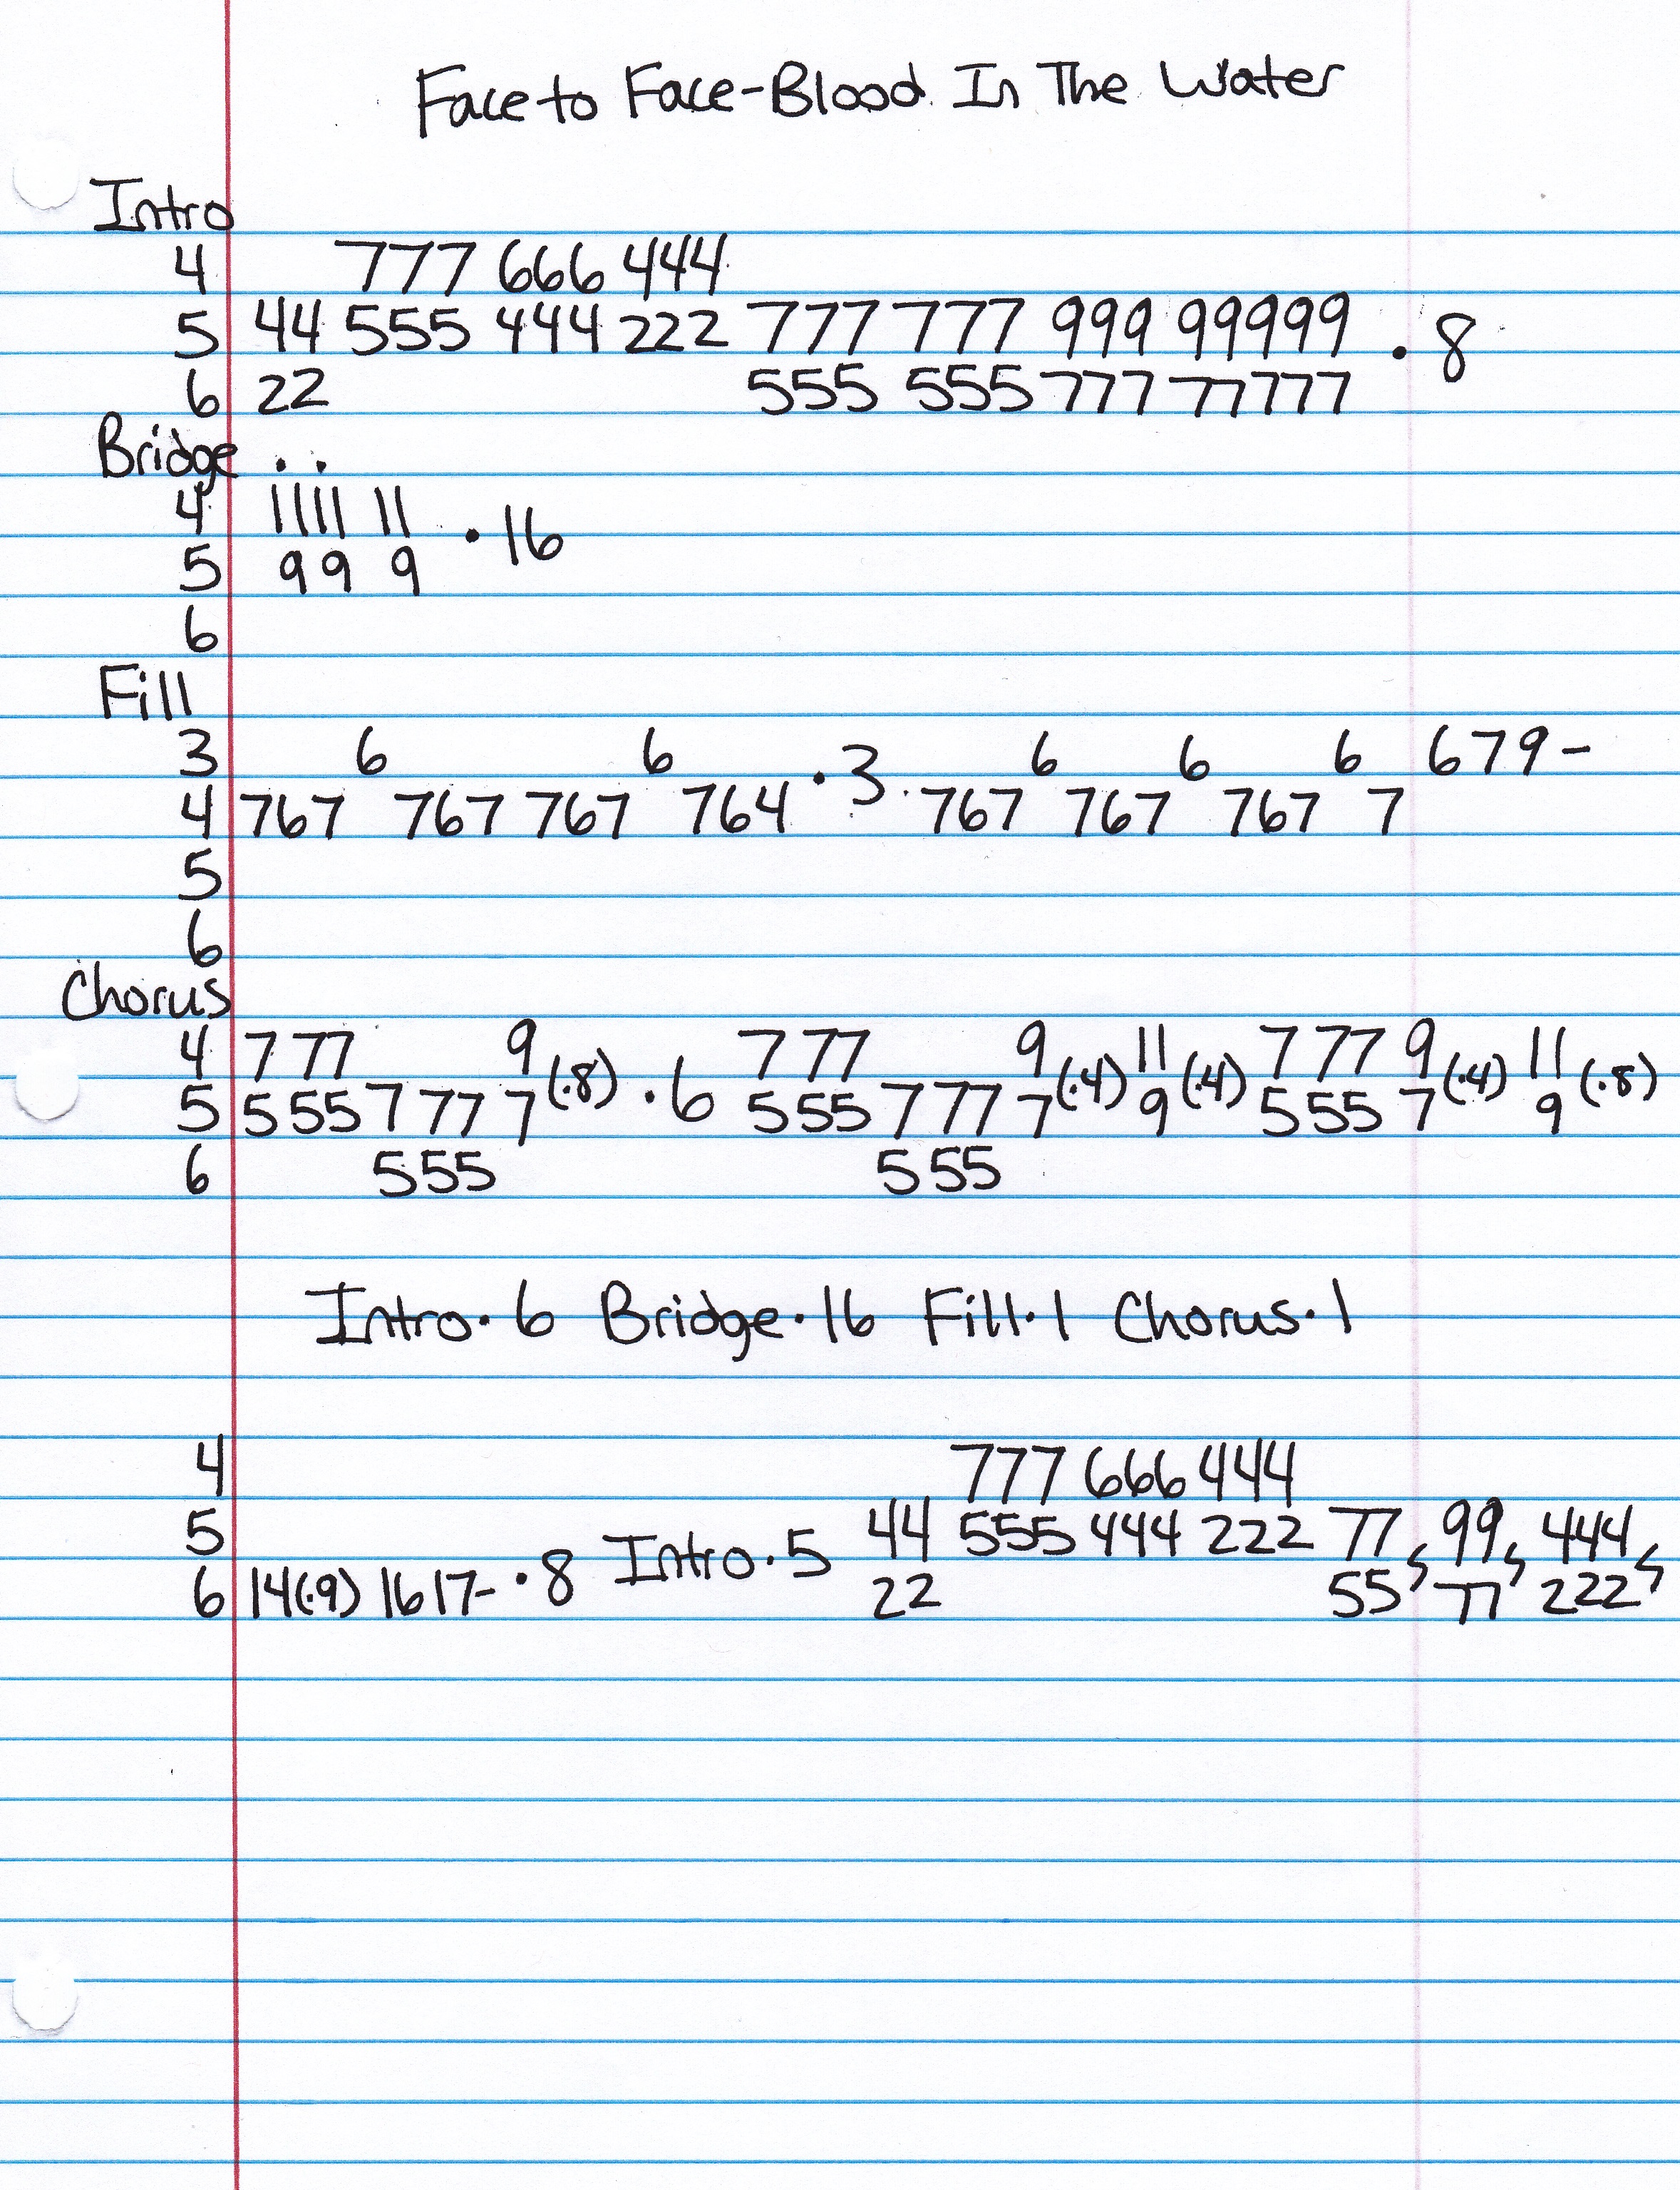 Face to Face-Blood In The Water
Intro
4 777 666 444
5 44 555 444 222 777 777 999 99999 · 8
6 22 555 555 777 77777
Bridge · ·
4 1111 11 · 16
5 99 9
6
Fill
3 6 6 · 3 6 6 6 679-
4 767 767 767 764 767 767 767 7
5
6
Chorus
4 7 77 9 (·8) · 6 7 77 9 (·4) 11 (·4) 7 77 9 (·4) 11 (·8)
5 5 55 7 77 7 5 55 7 77 7 9 5 55 7 9
6 555 5 55
Intro · 6 Bridge · 16 Fill · 1 Chorus · 1
4 777 666 444
5 Intro · 5 44 555 444 222 77 99 444
6 14(·9) 16 17- · 8 22 55 77 222